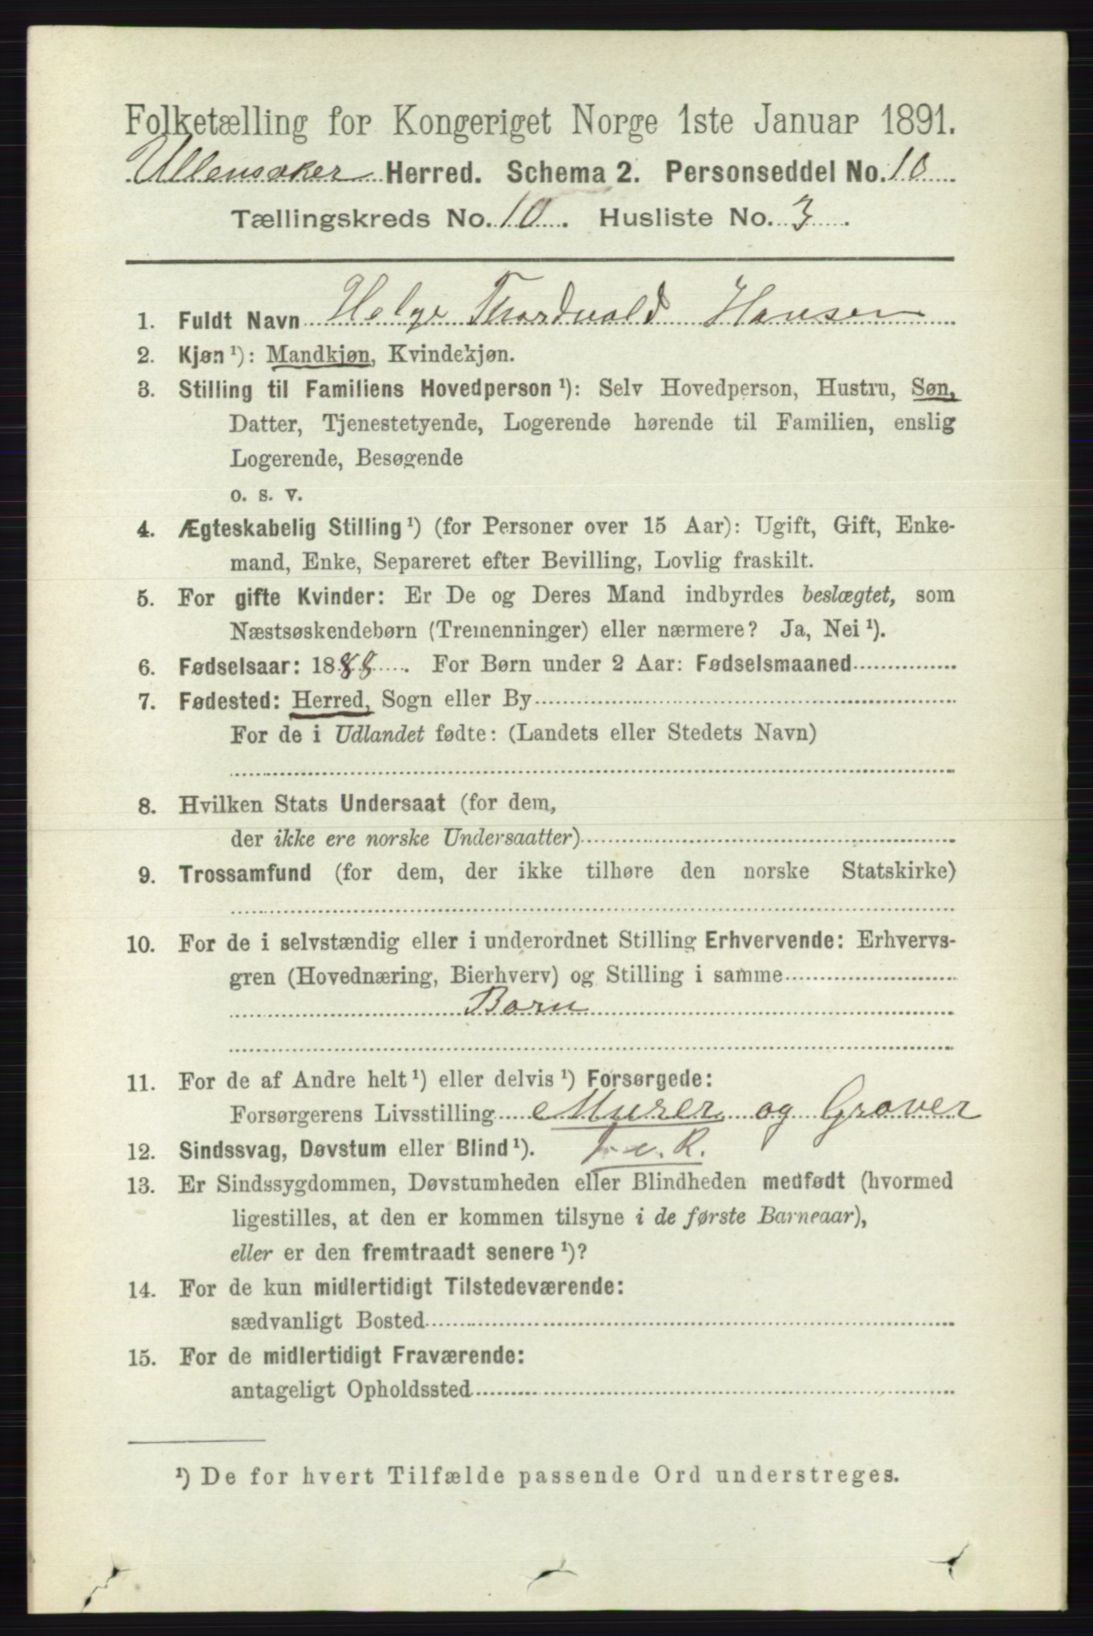 Folketælling for Kongeriget Norge 1ste Januar 1891.
Ullensaker Herred. Schema 2. Personseddel No. 10
Tællingskreds No. 10. Husliste No. 3.
1. Fuldt Navn Helge Thordvald Hansen
2. Kjøn ¹): Mandkjøn, Kvindekjøn.
3. Stilling til Familiens Hovedperson ¹): Selv Hovedperson, Hustru, Søn,
Datter, Tjenestetyende, Logerende hørende til Familien, enslig
Logerende, Besøgende
o. s. v.
4. Ægteskabelig Stilling ¹) (for Personer over 15 Aar): Ugift, Gift, Enke-
mand, Enke, Separeret efter Bevilling, Lovlig fraskilt.
5. For gifte Kvinder: Er De og Deres Mand indbyrdes beslægtet, som
Næstsøskendebørn (Tremenninger) eller nærmere? Ja, Nei ¹).
6. Fødselsaar: 1888. For Børn under 2 Aar: Fødselsmaaned
7. Fødested: Herred, Sogn eller By
For de i Udlandet fødte: (Landets eller Stedets Navn)
8. Hvilken Stats Undersaat (for dem,
der ikke ere norske Undersaatter)
9. Trossamfund (for dem, der ikke tilhøre den norske Statskirke)
10. For de i selvstændig eller i underordnet Stilling Erhvervende: Erhvervs-
gren (Hovednæring, Bierhverv) og Stilling i samme
Barn
11. For de af Andre helt ¹) eller delvis ¹) Forsørgede:
Forsørgerens Livsstilling Murer og Graver
12. Sindssvag, Døvstum eller Blind ¹).
13. Er Sindssygdommen, Døvstumheden eller Blindheden medfødt (hvormed
ligestilles, at den er kommen tilsyne i de første Barneaar),
eller er den fremtraadt senere ¹)?
14. For de kun midlertidigt Tilstedeværende:
sædvanligt Bosted
15. For de midlertidigt Fraværende:
antageligt Opholdssted
¹) De for hvert Tilfælde passende Ord understreges.